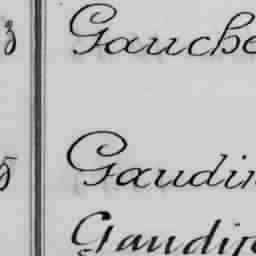 3 Gauche
5 Gaudin
Gaudin